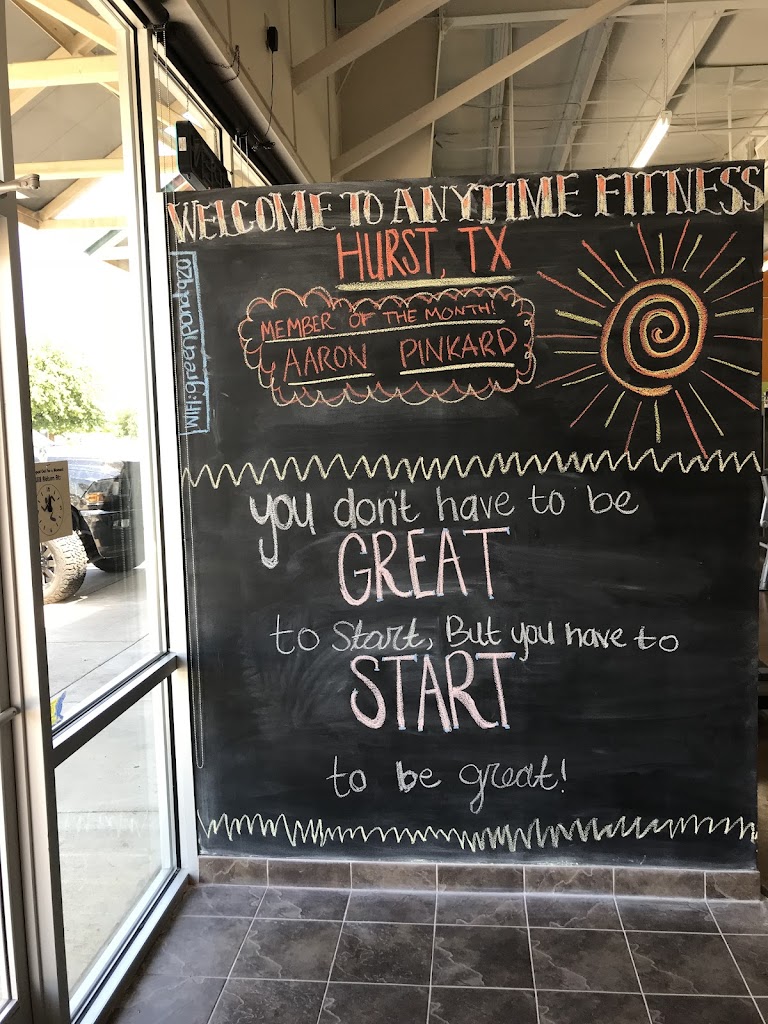 WELCOME TO ANYTIME FITNESS
HURST, TX
MEMBER OF THE MONTH!
AARON PINKARD
WIFI: greenpond920
you don't have to be
GREAT
to Start, But you have to
START
to be great!